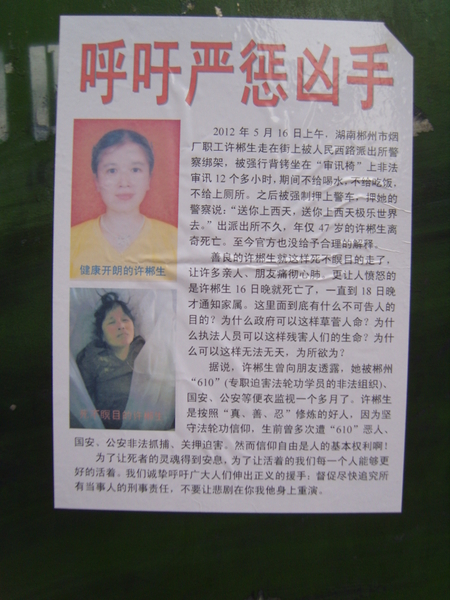 呼吁严惩凶手
2012 年 5 月 16 日上午，湖南郴州市烟
厂职工许郴生走在街上被人民西路派出所警
察绑架，被强行背铐坐在“审讯椅”上非法
审讯 12 个多小时，期间不给喝水，不给吃饭，
不给上厕所。之后被强制押上警车，押她的
警察说：“送你上西天，送你上西天极乐世界
去。”出派出所不久，年仅 47 岁的许郴生离
奇死亡。至今官方也没给予合理的解释。
健康开朗的许郴生
善良的许郴生就这样死不瞑目的走了，
让许多亲人、朋友痛彻心肺。更让人愤怒的
是许郴生 16 日晚就死亡了，一直到 18 日晚
才通知家属。这里面到底有什么不可告人的
目的？为什么政府可以这样草菅人命？为什
么执法人员可以这样残害人们的生命？为什
么可以这样无法无天，为所欲为？
据说，许郴生曾向朋友透露，她被郴州
“610”(专职迫害法轮功学员的非法组织)、
国安、公安等便衣监视一个多月了。许郴生
是按照“真、善、忍”修炼的好人，因为坚
守法轮功信仰，生前曾多次遭“610”恶人、
死不瞑目的许郴生
国安、公安非法抓捕、关押迫害。然而信仰自由是人的基本权利啊！
为了让死者的灵魂得到安息，为了让活着的我们每一个人能够更
好的活着。我们诚挚呼吁广大人们伸出正义的援手；督促尽快追究所
有当事人的刑事责任，不要让悲剧在你我他身上重演。